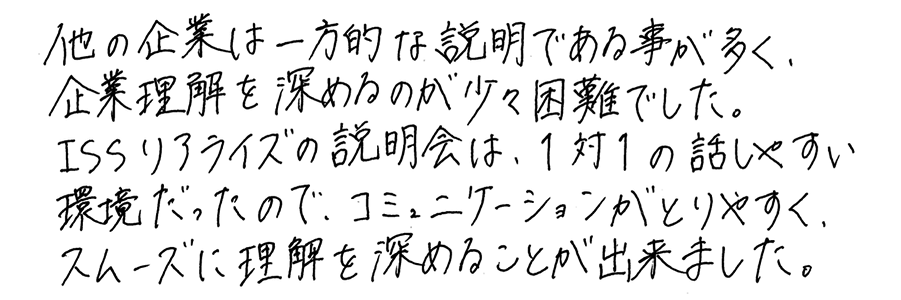 他の企業は一方的な説明である事が多く、
企業理解を深めるのが少々困難でした。
ISSリアライズの説明会は、1対1の話しやすい
環境だったので、コミュニケーションがとりやすく、
スムーズに理解を深めることが出来ました。